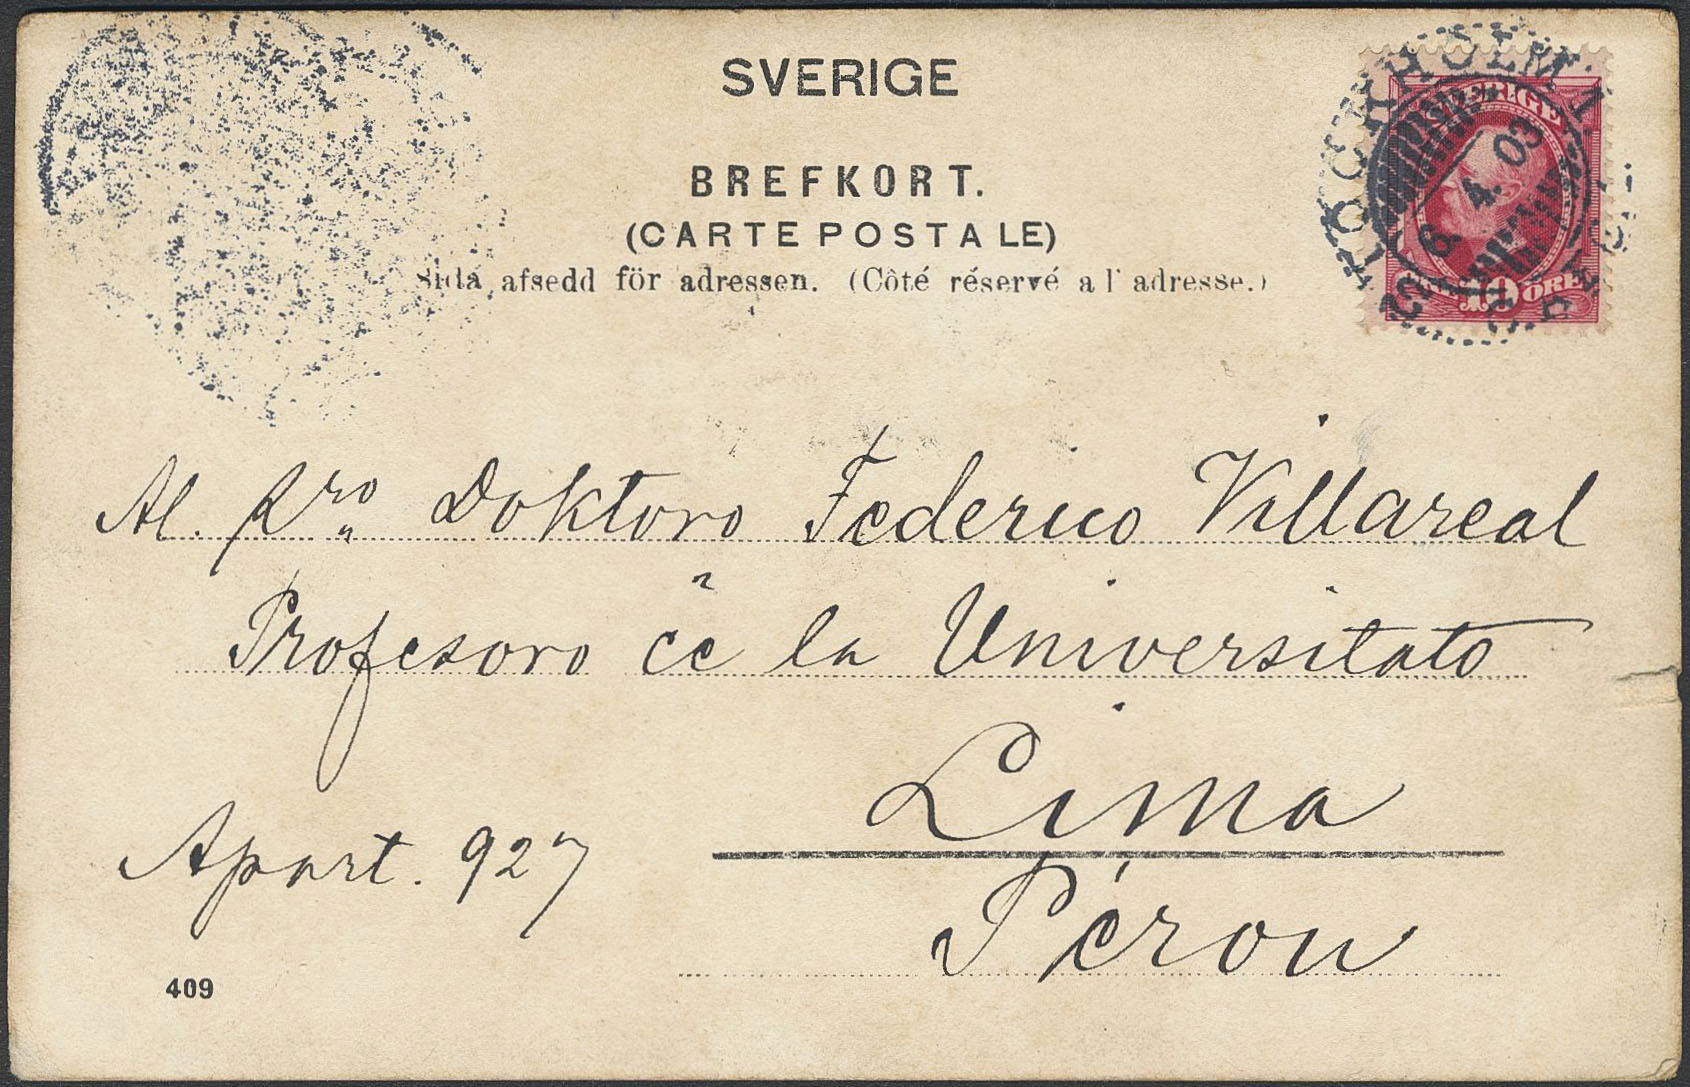 SVERIGE
BREFKORT.
(CARTE POSTALE)
Sida afsedd för adressen. (Côté réservé a l' adresse.)
SVERIGE
6. 4. 03
10 ÖRE
Al. Kro Doktoro Federico Villareal
Profesoro ĉe la Universitato
Lima
Apart. 927
Pérou
409